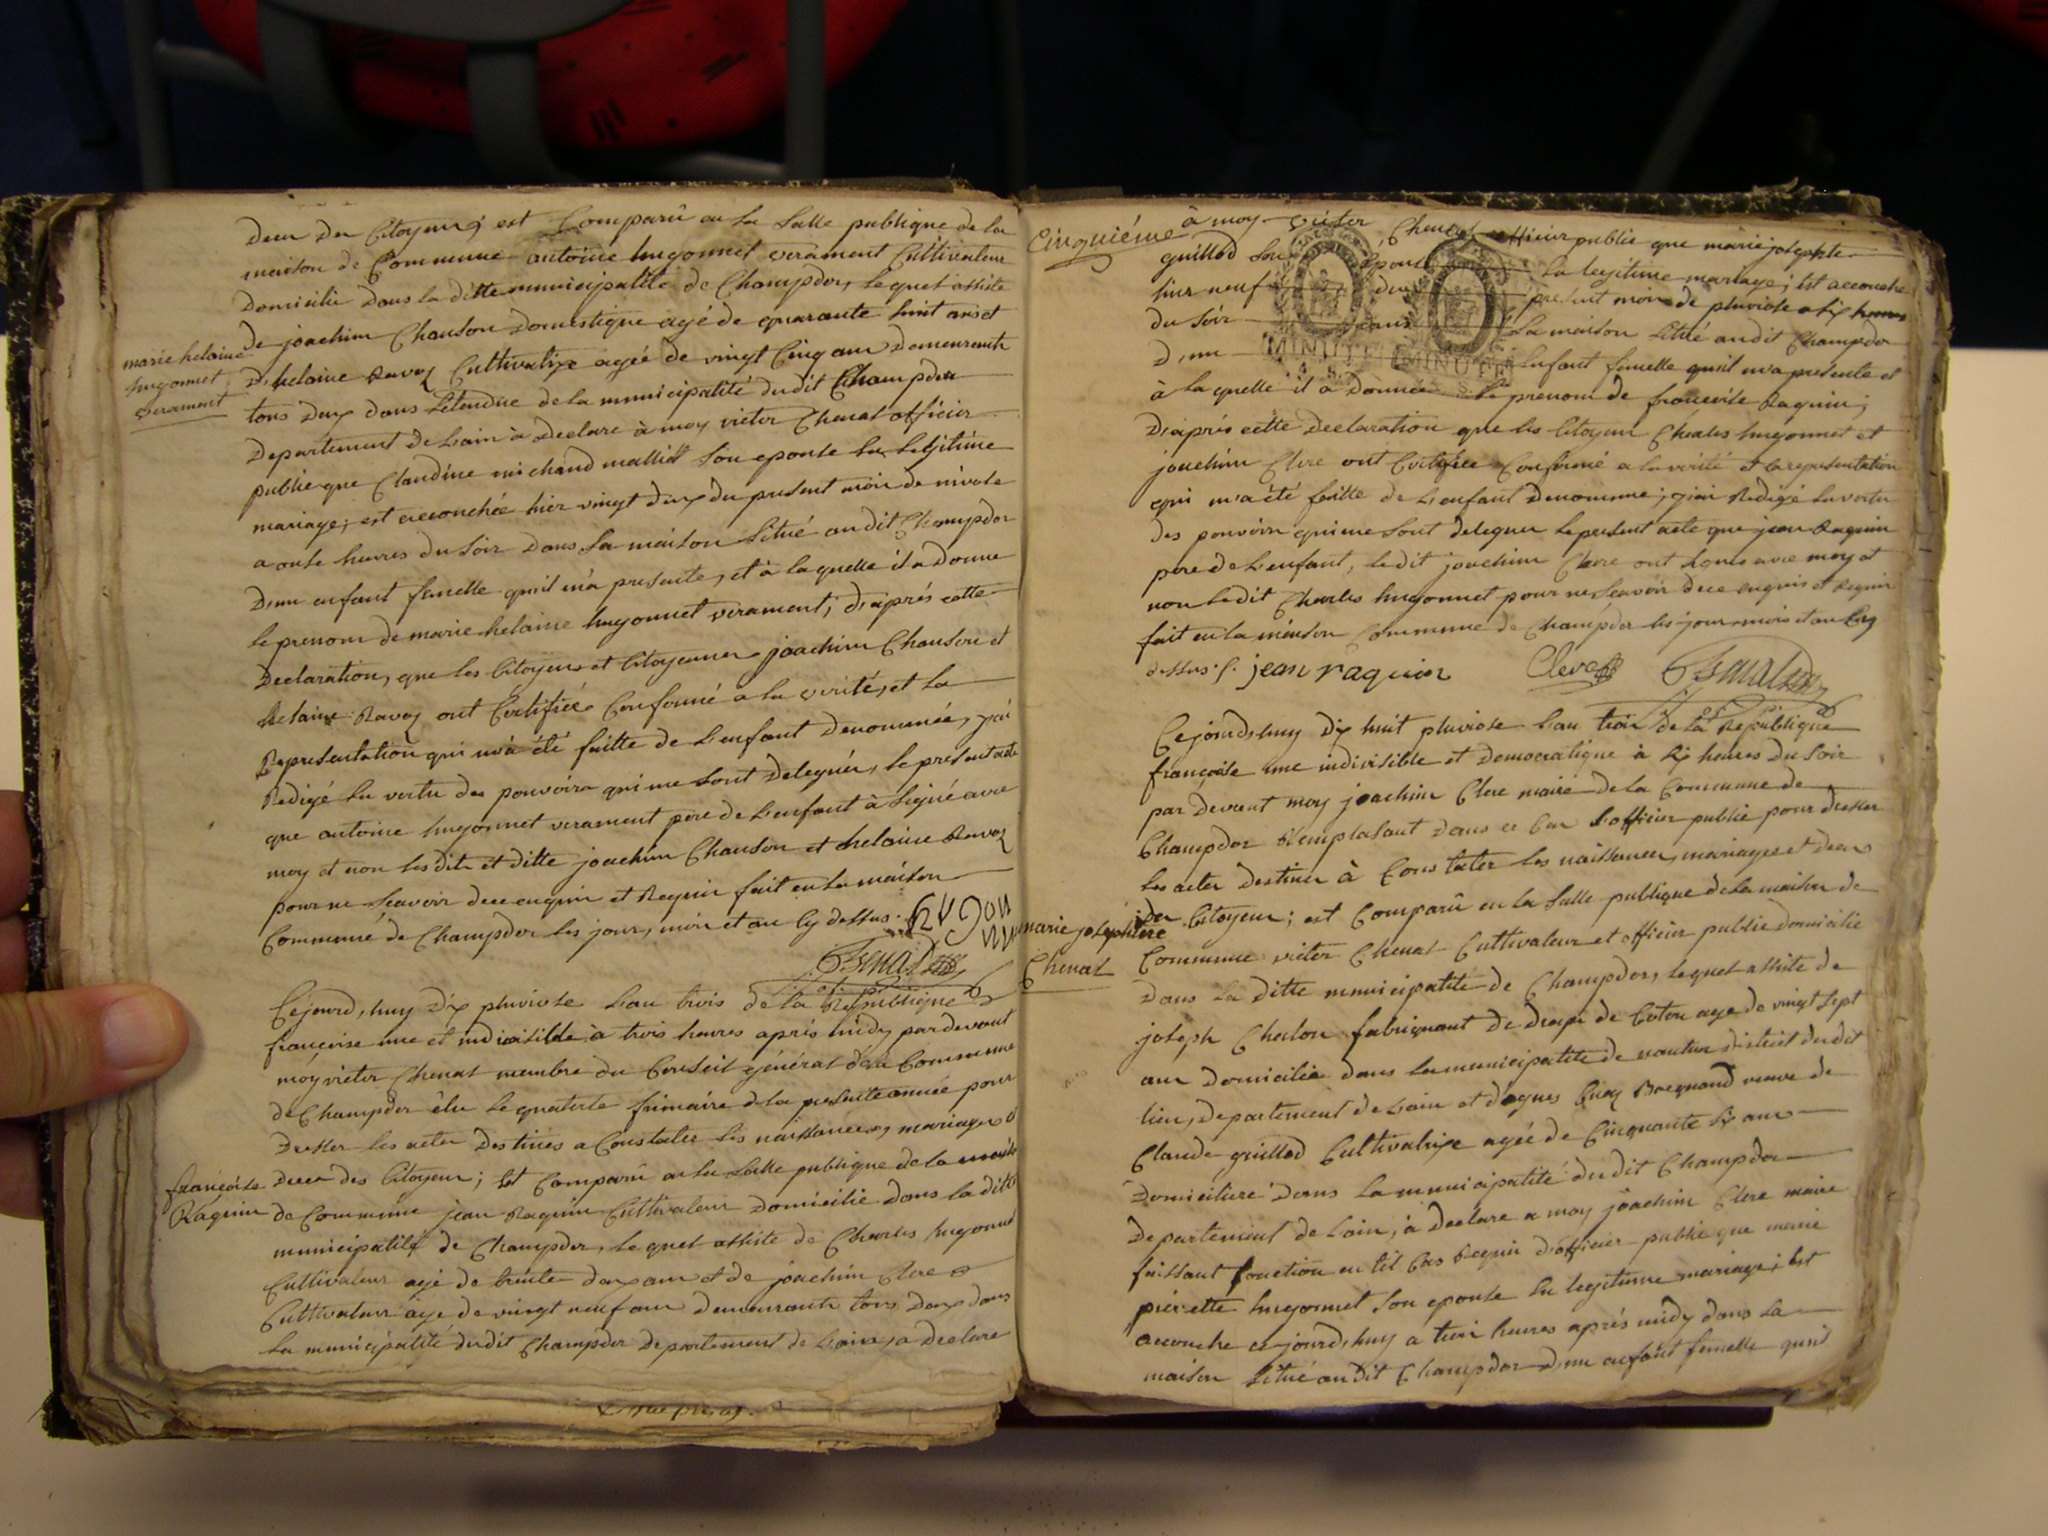 Deces Des Citoyens; est Comparû en la Salle publique de la
maison de Commune antoine hugonnet verament Cultivateur
Domicilié Dans la ditte municipalité de Champdor, lequel assisté
De joachim Chanson Domestique agé de quarante huit ans et
marie helaine
hugonnet
verament
D, helaine Ravoz Cultivatrixe agée de vingt Cinq ans Demeurants
tous Deux dans Letendue de la municipalité dudit Champdor
Departement de Lain à Declaré à moy victor Chenal officier
public que Claudine michaud mallid Son epouse En Legitime
mariage, est accouchée hier vingt Deux du present mois de nivose
a onse heures du Soir Dans Sa maison Situé audit Champdor
D,un enfant femelle quil m'a presenté, et à laquelle il a Donne
le prenom de marie helaine hugonnet verament; D,aprés cette
Declaration, que les Citoyens et Citoyenne joachim Chanson et
helaine Ravoz ont Certifiée Conforme a la verité, et la
Representation qui m'a été faitte de L'enfant Denommée, j'ai
Redigé En vertu des pouvoirs qui me sont Delegués, le présent acte
que antoine hugonnet verament pere de L'enfant à Signé avec
moy et non lesdits et ditte joachim Chanson et helaine Ravoz
pour ne Scavoir de ce enquis et Requis fait en La maison
Commune de Champdor les jour, mois et an Cy dessus.
hugonnet
Chenal
Cejourd,huy Dix pluviose L'an trois de la Republique
françoise une et indivisible, à trois heures aprés midy, pardevant
moy victor Chenal membre du Conseil général de la Commune
de Champdor élu Le quatorse frimaire de la presente année pour
Dresser les actes Destinés a Constater les naissances, mariages et
francoise
Raquin
deces des Citoyens; Est Comparû en la Salle publique de la maison
de Commune jean Raquin Cultivateur Domicilié dans la ditte
municipalité de Champdor, lequel assisté de Charles hugonnet
Cultivateur agé de trente deux ans et de joachim Clere
Cultivateur âgé de vingt neuf ans demeurants tous Deux dans
La municipalité dudit Champdor Departement de Lain, a Declaré
Cinquiéme
à moy victor Chenal officier public que marie josephte
guillod Son Epouse En legitime mariage; Est accouchée
hier neuf du present mois de pluviose a six heures
du Soir dans Sa maison Situé audit Champdor
D,un Enfant femelle quil m'a presenté et
à laquelle il a Donnée Le prenom de françoise Raquin;
D'aprés cette Declaration que les Citoyens Charles hugonnet et
joachim Clere ont Certifiée Conforme a la verité et la representation
qui m'a été faitte de L'enfant Denommé; j'ai Redigé En vertu
des pouvoirs qui me sont deleguer Le present acte que jean Raquin
pere de L'enfant, le dit joachim Clere ont Signés avec moy et
non Ledit Charles hugonnet pour ne Scavoir de ce enquis et Requis
fait en la maison Commune de Champdor les jour mois et an Cy
dessus. jean raquin Clere Chenal
MINUTE MINUTE
Cejourd,huy Dix huit pluviose L'an trois de la Republique
françoise une indivisible et Democratique à six heures du Soir
par Devant moy joachim Clere maire de la Commune de
Champdor Remplasant Dans ce Cas L'officier public pour dresser
Les actes Destiner à Constater les naissances, mariages et deces
marie josephte
Chenal
des Citoyens; est Comparû en la Salle publique de la maison de
Commune victor Chenal Cultivateur et officier public domicilié
Dans La Ditte municipalité de Champdor, lequel assisté de
joseph Chalon fabriquant de Draps de Coton agé de vingt sept
ans Domicilié dans la municipalité de nantua District dudit
lieu, Departement de Lain et d'agnes Cuaz Bacquand veuve de
Claude guillod Cultivatrixe agée de Cinquante six ans
Domiciliée Dans La municipalité dudit Champdor
Departement de Lain, à Declaré a moy joachim Clere maire
faissant fonction en tel Cas Requis D'officier public que marie
pierrette hugonnet Son epouse En legitime mariage; Est
accouche cejourd,huy a trois heures aprés midy dans Sa
maison Situé audit Champdor D,un enfant femelle quil